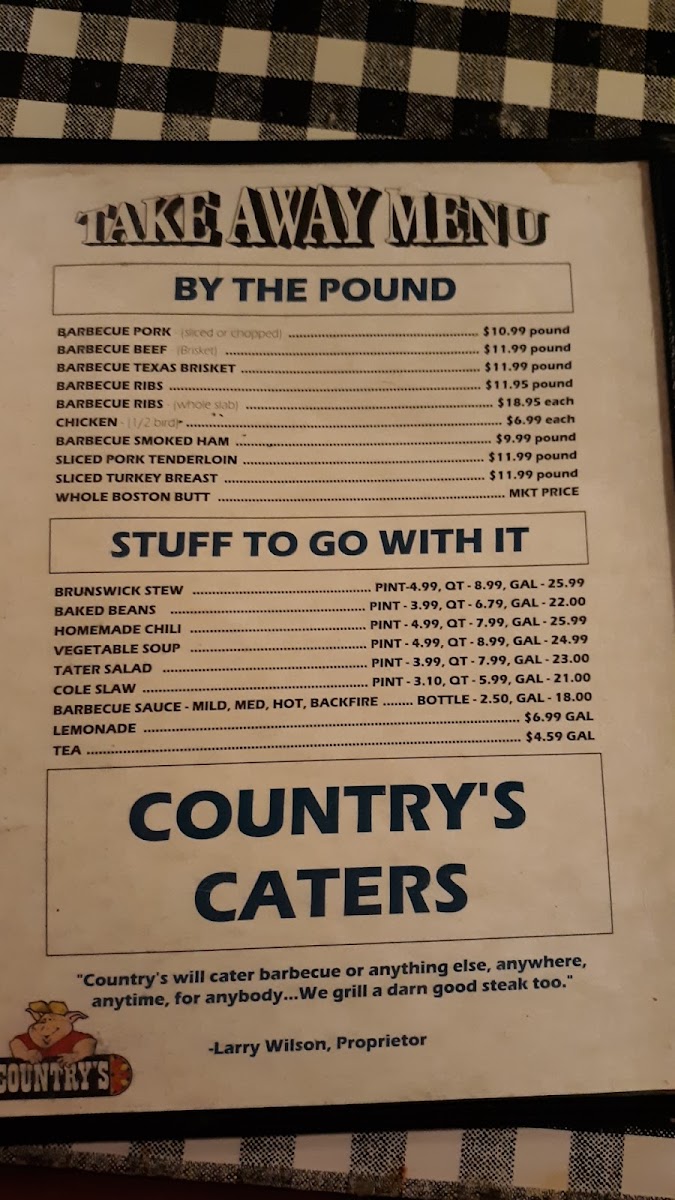 TAKE AWAY MENU
BY THE POUND
BARBECUE PORK - (sliced or chopped) ........ $10.99 pound
BARBECUE BEEF - (Brisket) ........ $11.99 pound
BARBECUE TEXAS BRISKET ........ $11.99 pound
BARBECUE RIBS ........ $11.95 pound
BARBECUE RIBS - (whole slab) ........ $18.95 each
CHICKEN - (1/2 bird) ........ $6.99 each
BARBECUE SMOKED HAM ........ $9.99 pound
SLICED PORK TENDERLOIN ........ $11.99 pound
SLICED TURKEY BREAST ........ $11.99 pound
WHOLE BOSTON BUTT ........ MKT PRICE
STUFF TO GO WITH IT
BRUNSWICK STEW ........ PINT-4.99, QT - 8.99, GAL - 25.99
BAKED BEANS ........ PINT - 3.99, QT - 6.79, GAL - 22.00
HOMEMADE CHILI ........ PINT - 4.99, QT - 7.99, GAL - 25.99
VEGETABLE SOUP ........ PINT - 4.99, QT - 8.99, GAL - 24.99
TATER SALAD ........ PINT - 3.99, QT - 7.99, GAL - 23.00
COLE SLAW ........ PINT - 3.10, QT - 5.99, GAL - 21.00
BARBECUE SAUCE - MILD, MED, HOT, BACKFIRE ........ BOTTLE - 2.50, GAL - 18.00
LEMONADE ........ $6.99 GAL
TEA ........ $4.59 GAL
COUNTRY'S
CATERS
"Country's will cater barbecue or anything else, anywhere,
anytime, for anybody...We grill a darn good steak too."
-Larry Wilson, Proprietor
COUNTRY'S